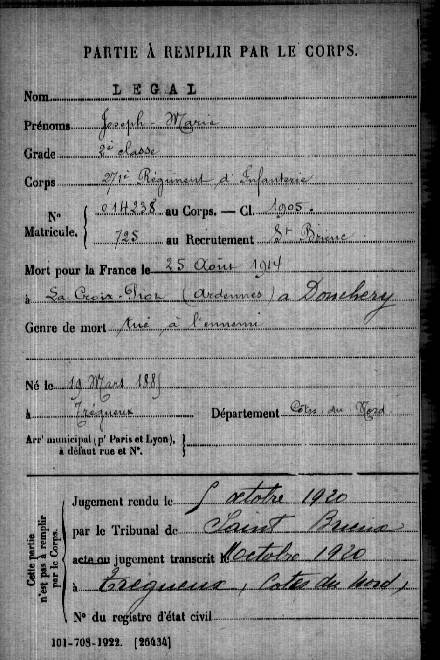 PARTIE À REMPLIR PAR LE CORPS.
Nom LEGAL
Prénoms Joseph-Marie
Grade 2e classe
Corps 271e Régiment d'Infanterie
N° Matricule. 014238 au Corps. — Cl. 1905.
725 au Recrutement St Brieuc
Mort pour la France le 25 Août 1914
à La Croix-Piot (Ardennes) a Donchery
Genre de mort tué à l'ennemi
Né le 19 Mars 1885
à Trégueux Département Côtes du Nord
Arrt municipal (pr Paris et Lyon), à défaut rue et N°.
Cette partie n'est pas à remplir par le Corps.
Jugement rendu le 5 octobre 1920
par le Tribunal de Saint Brieuc
acte ou jugement transcrit le octobre 1920
à Tregueux, (Cotes du Nord)
N° du registre d'état civil
101-708-1922. [26434]